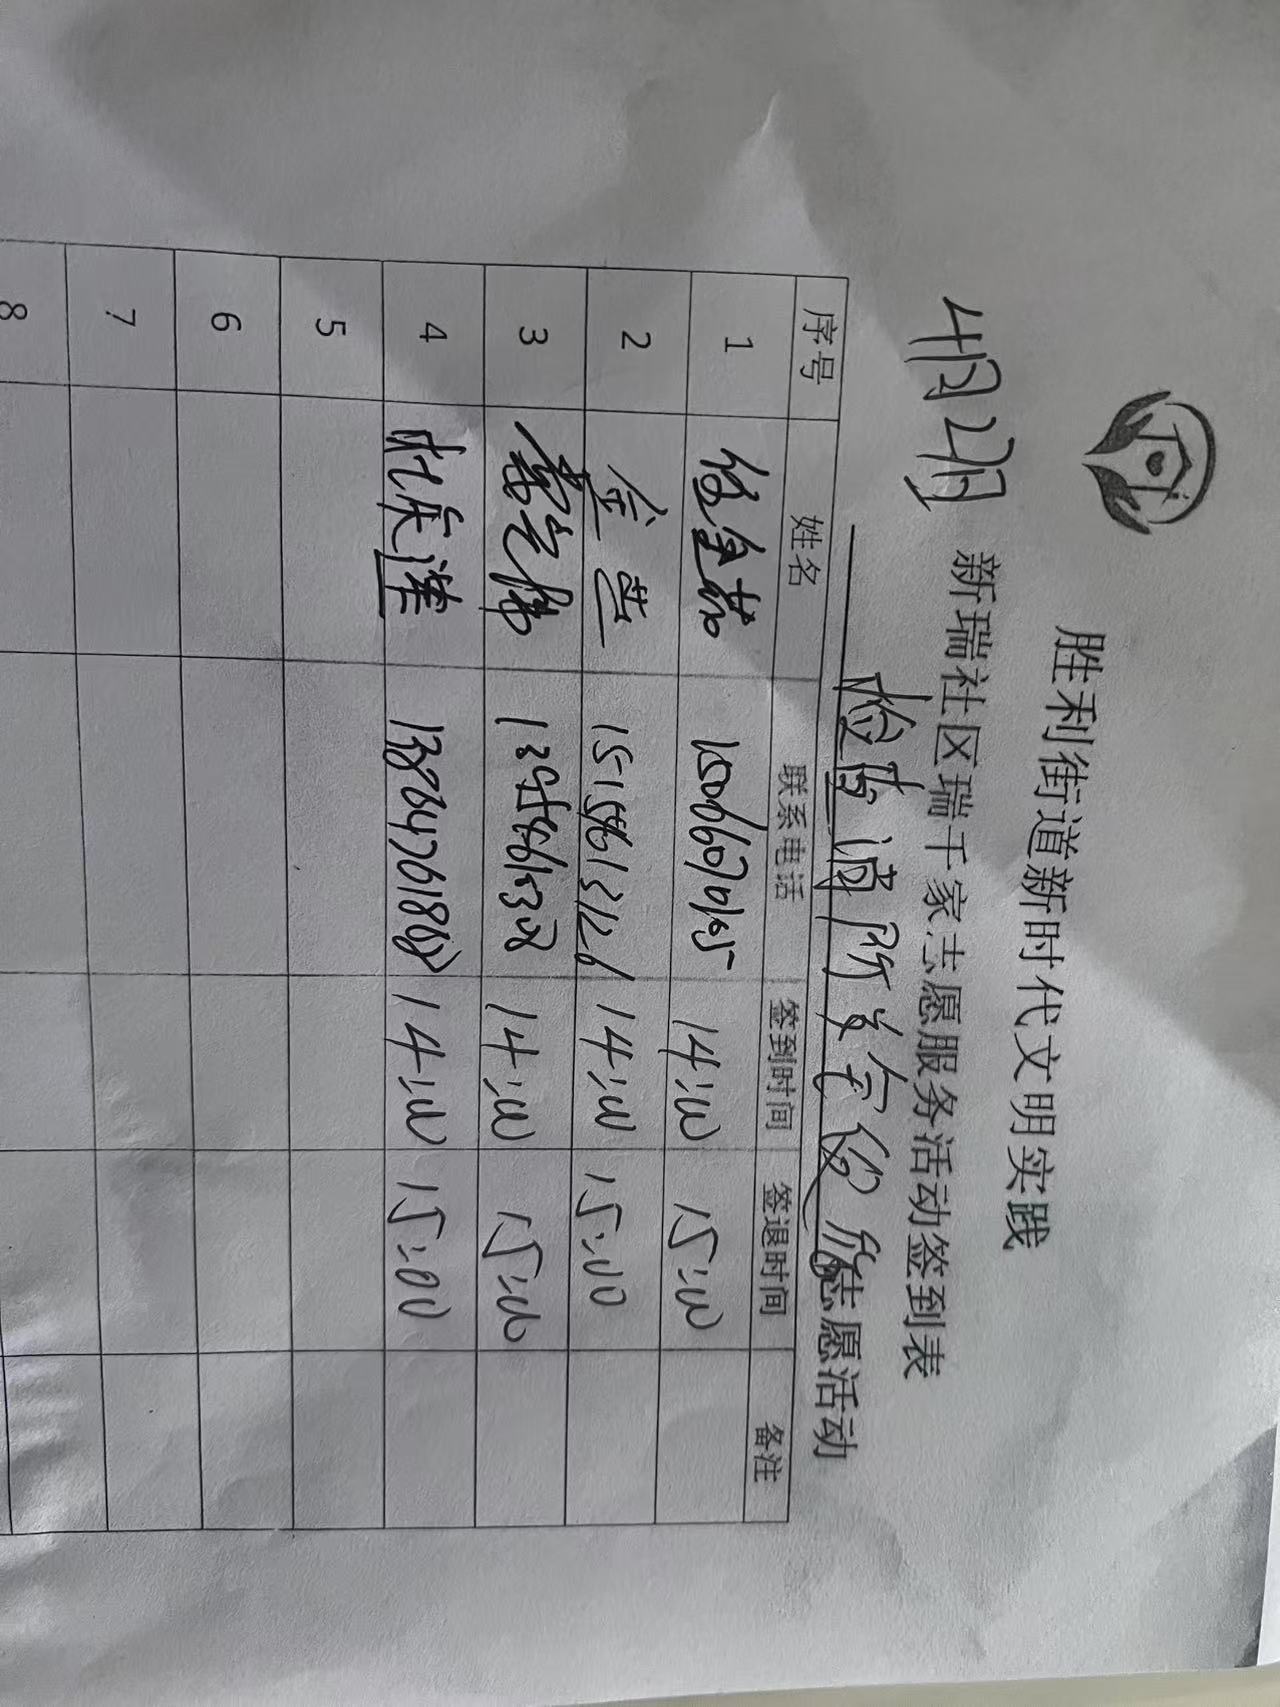 胜利街道新时代文明实践
4月2日 新瑞社区瑞千家志愿服务活动签到表
检查消防安全设施志愿活动
序号 姓名 联系电话 签到时间 签退时间 备注
1 14:00 15:00
2 金 15156613126 14:00 15:00
3 14:00 15:00
4 杜庆莲 13864761868 14:00 15:00
5
6
7
8